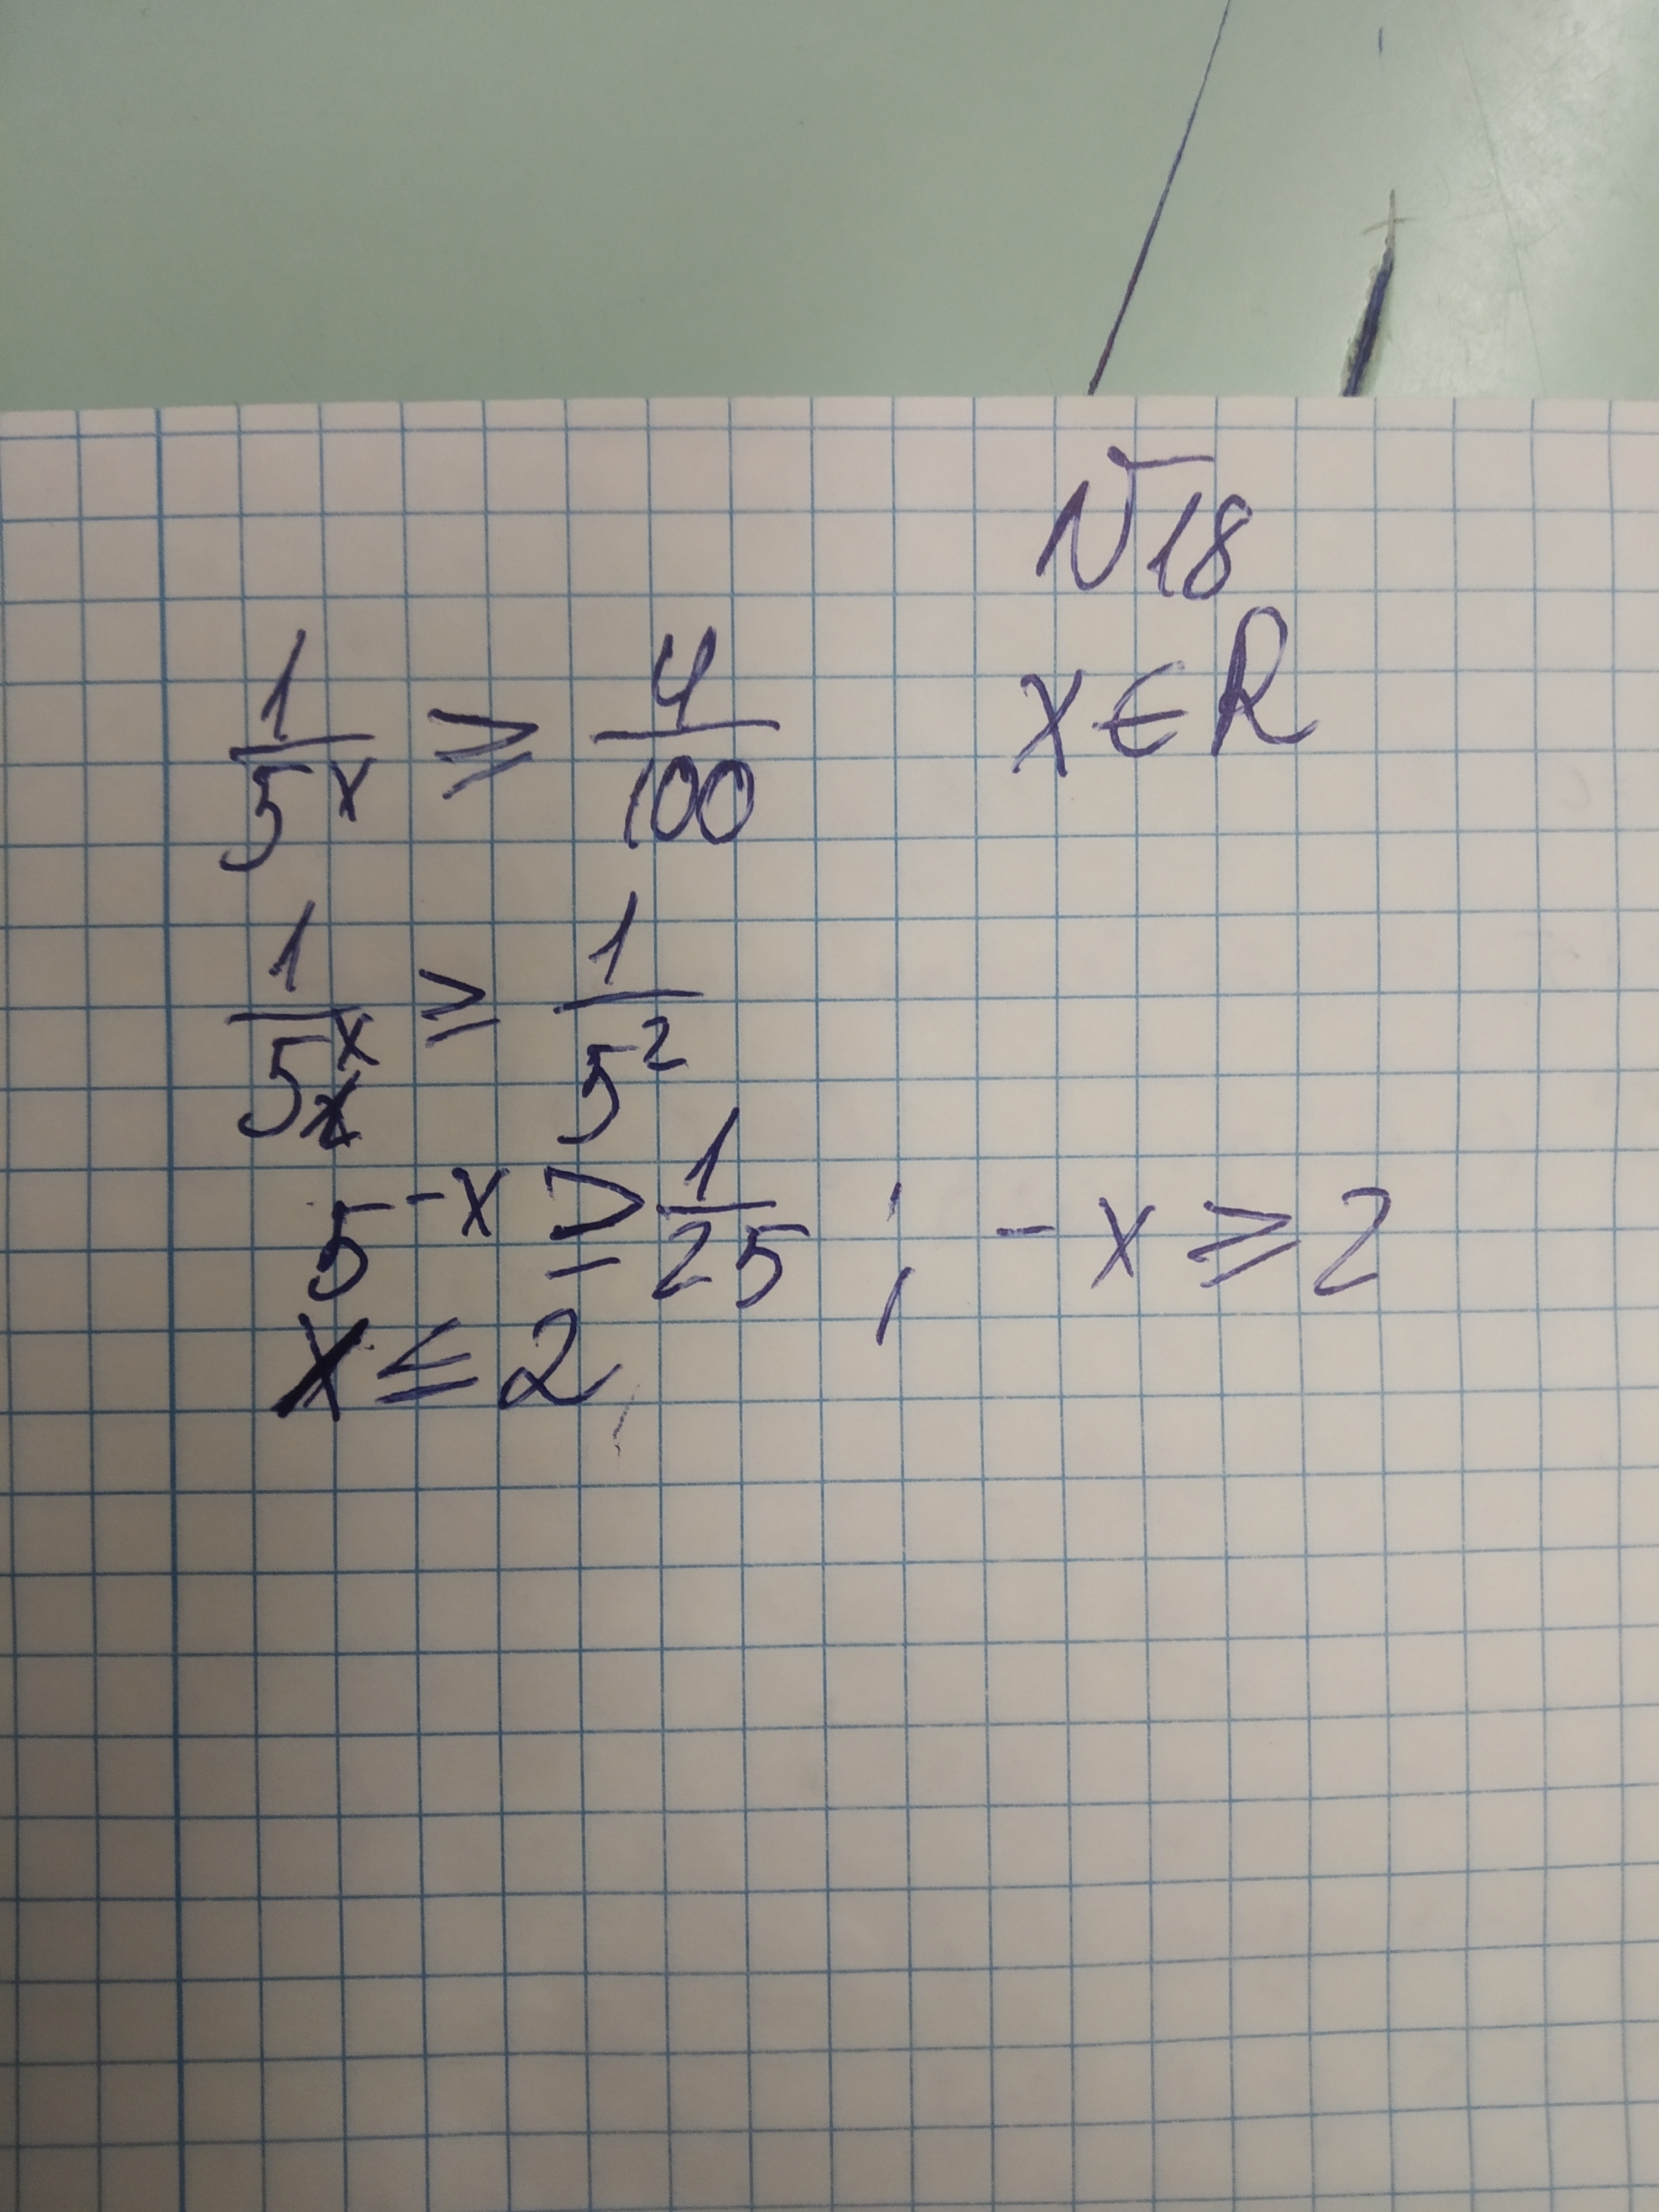 №18
x ∈ R
1/5^x ≥ 4/100
1/5^x ≥ 1/5^2
5^-x ≥ 1/25 ; -x ≥ 2
x ≤ 2